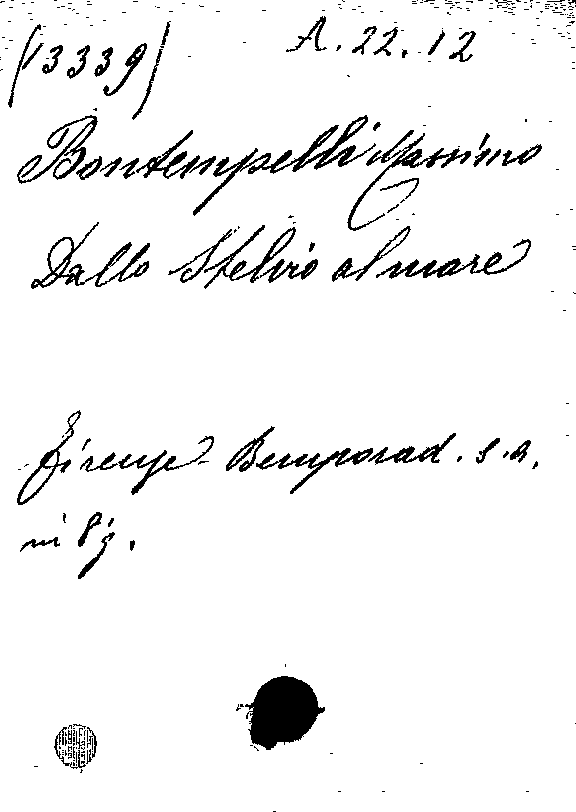 (13339) A.22.12
Bontempelli Massimo
Dallo Stelvio al mare
Firenze - Bemporad. s.a.
in 8°g.